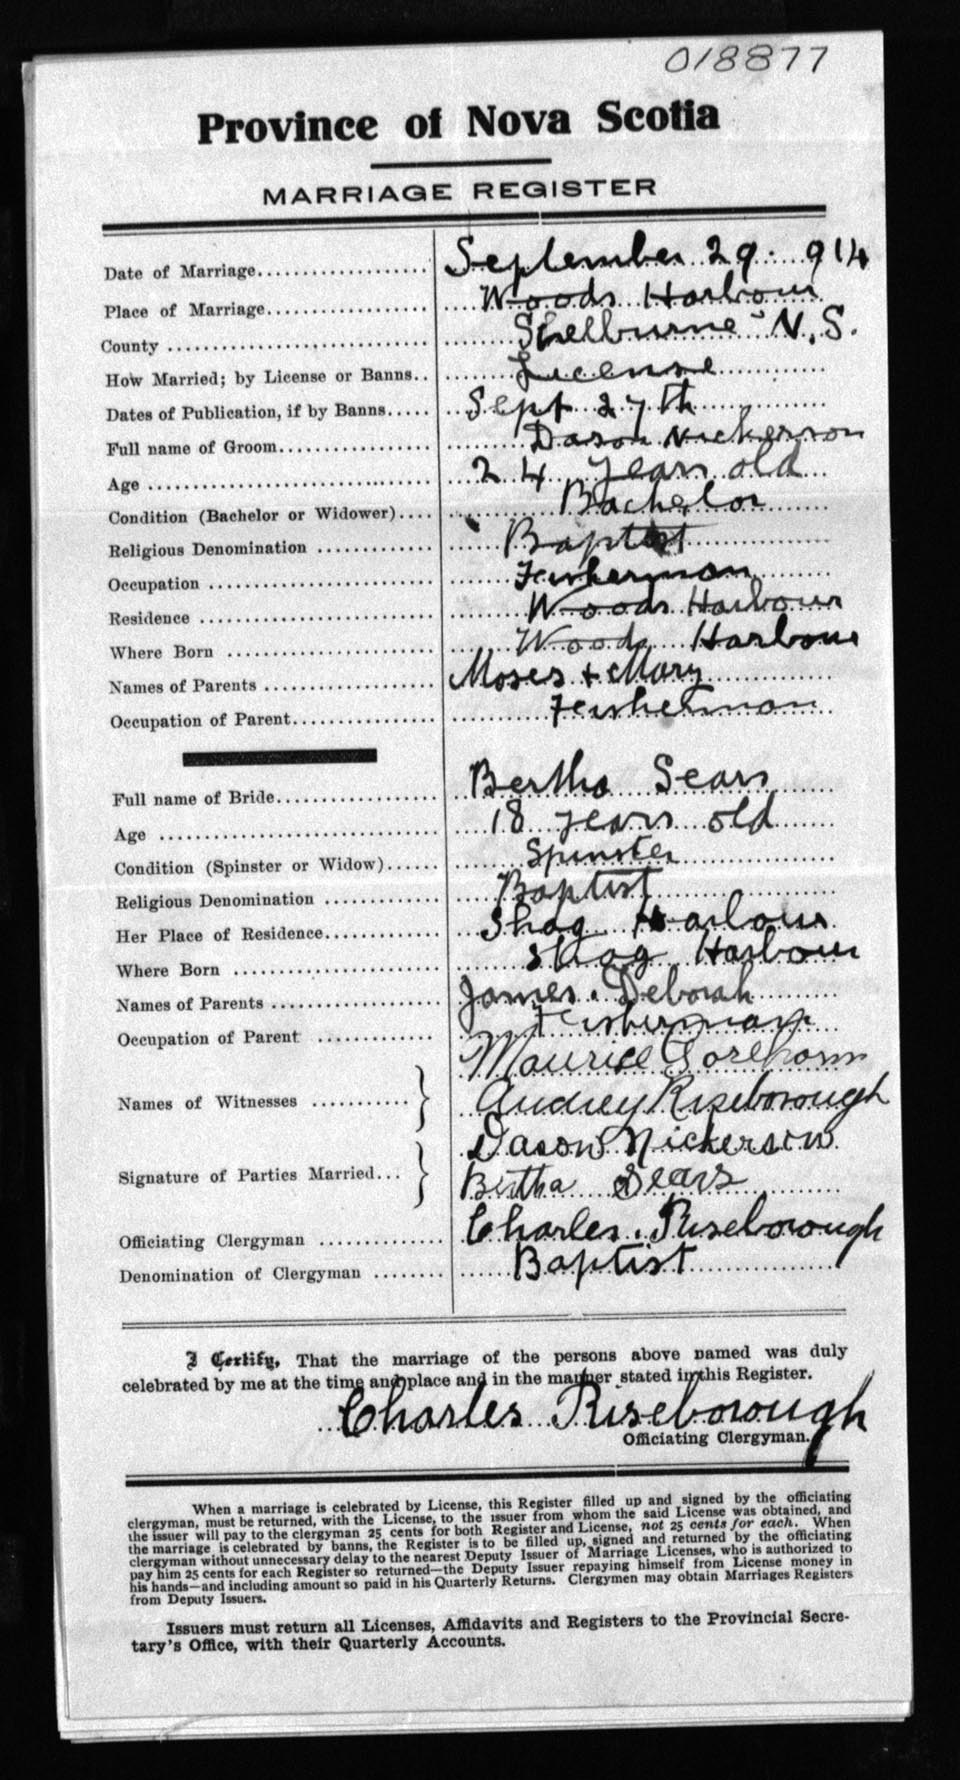 018877
Province of Nova Scotia
MARRIAGE REGISTER
Date of Marriage.................... September 29. 914
Place of Marriage.................... Woods Harbour
County .................... Shelburne N.S.
How Married; by License or Banns.. License
Dates of Publication, if by Banns..... Sept 27th
Full name of Groom.................... Dason Nickerson
Age .................... 24 years old
Condition (Bachelor or Widower).... Bachelor
Religious Denomination .............. Baptist
Occupation .................... Fisherman
Residence .................... Woods Harbour
Where Born .................... Woods Harbour
Names of Parents .................... Moses + Mary
Occupation of Parent.................... Fisherman
Full name of Bride.................... Bertha Sears
Age .................... 18 years old
Condition (Spinster or Widow)...... Spinster
Religious Denomination .............. Baptist
Her Place of Residence.............. Shag Harbour
Where Born .................... Shag Harbour
Names of Parents .................... James. Deborah
Occupation of Parent .............. Fisherman
Names of Witnesses ............ } Maurice Gorehom
Audrey Riseborough
Signature of Parties Married... } Dason Nickerson
Bertha Sears
Officiating Clergyman .............. Charles. Riseborough
Denomination of Clergyman ........ Baptist
I Certify, That the marriage of the persons above named was duly
celebrated by me at the time and place and in the manner stated in this Register.
Charles Riseborough
Officiating Clergyman.
When a marriage is celebrated by License, this Register filled up and signed by the officiating
clergyman, must be returned, with the License, to the issuer from whom the said License was obtained, and
the issuer will pay to the clergyman 25 cents for both Register and License, not 25 cents for each. When
the marriage is celebrated by banns, the Register is to be filled up, signed and returned by the officiating
clergyman without unnecessary delay to the nearest Deputy Issuer of Marriage Licenses, who is authorized to
pay him 25 cents for each Register so returned—the Deputy Issuer repaying himself from License money in
his hands—and including amount so paid in his Quarterly Returns. Clergymen may obtain Marriages Registers
from Deputy Issuers.
Issuers must return all Licenses, Affidavits and Registers to the Provincial Secre-
tary's Office, with their Quarterly Accounts.